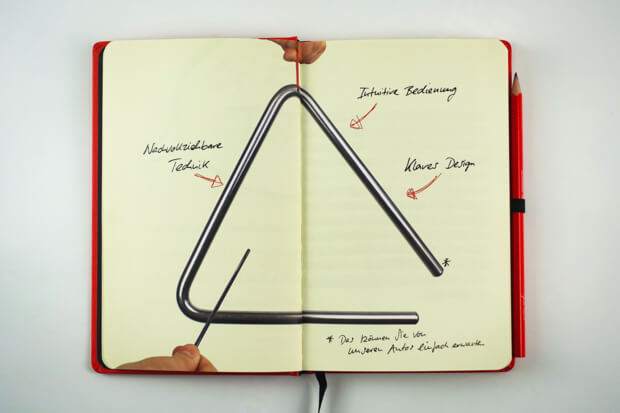 Nachvollziehbare
Technik
Intuitive Bedienung
Klares Design
*
* Das können Sie von
unseren Autos einfach erwarten